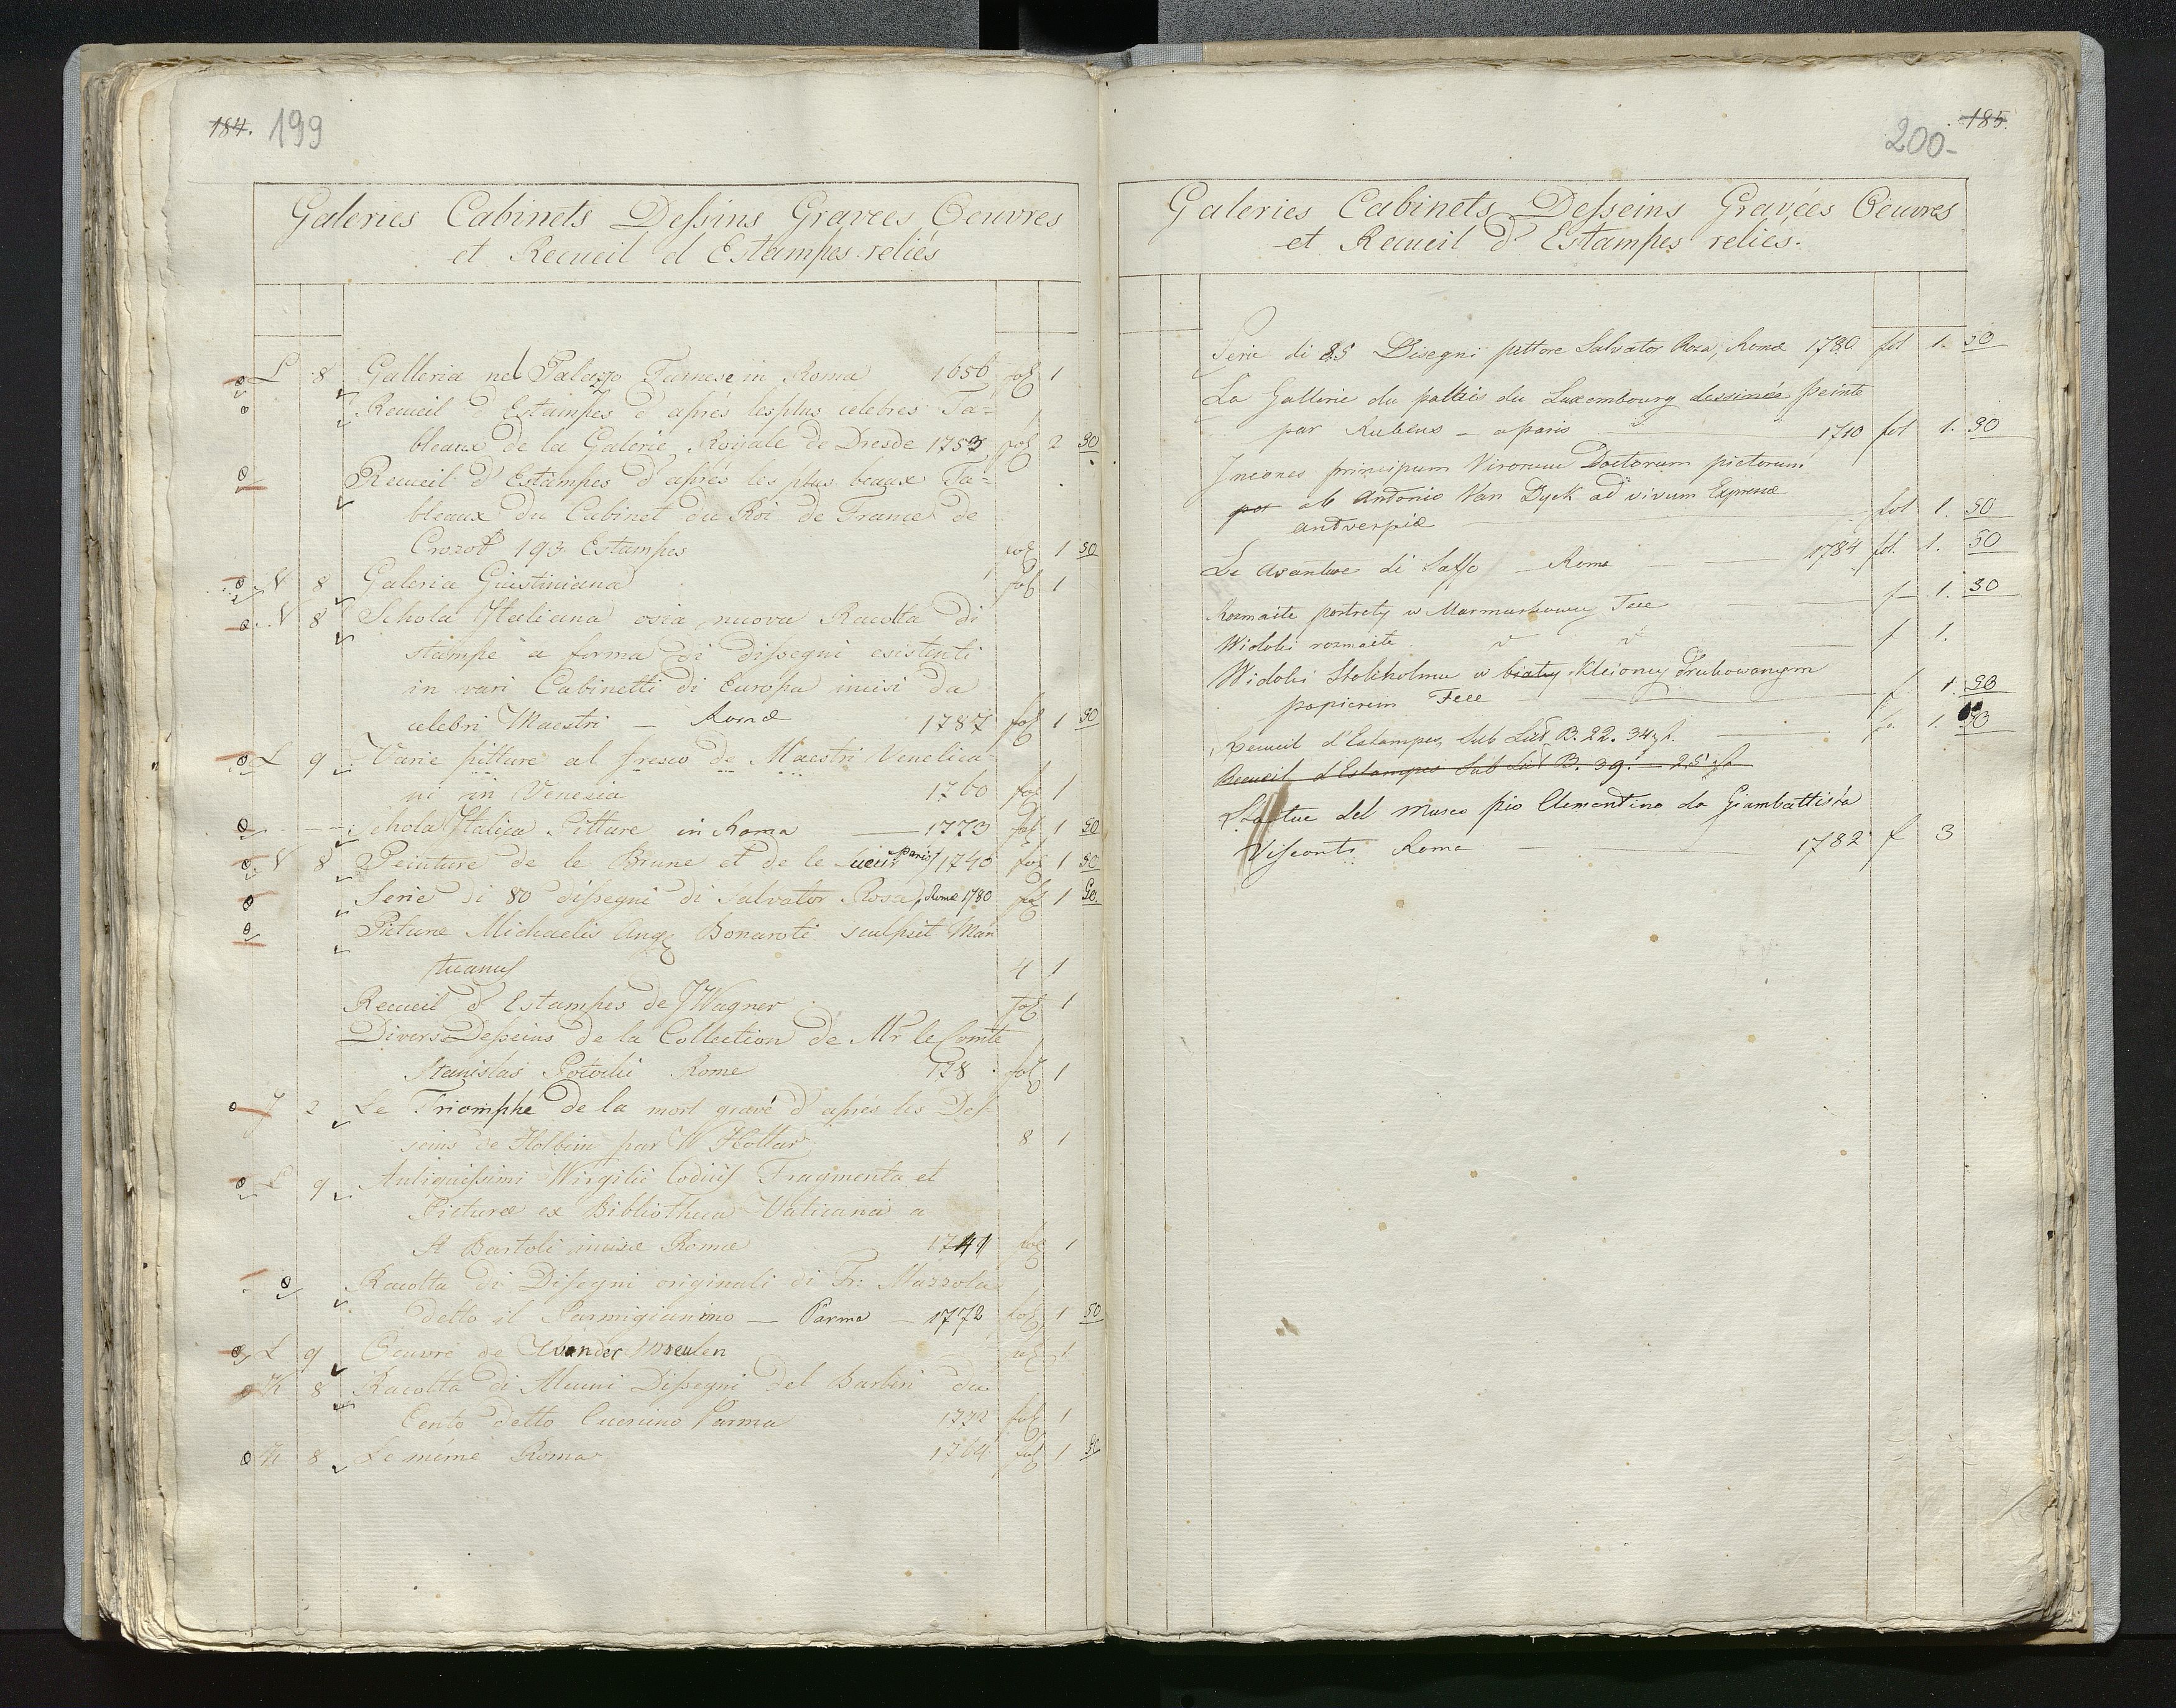 184. 199
Galeries Cabinets Deſsins Gravees Oeuvres
et Recueil d Estampes reliés
L 8 Galleria nel Palazzo Farnese in Roma 1656 fol 1
Recueil d'Estampes d'aprés les plus celebres Ta=
bleaux de la Galerie Roiiale de Dresde 1753 fol 2 50
Recueil d'Estampes d'aprés les plus beaux Ta=
bleaux du Cabinet du Roi de France de
Crozot 193 Estampes fol 1 50
N 8 Galeria Giustiniana fol 1
N 8 Schola Italiana osia nuova Racolta di
stampe a forma di diſsegni esistenti
in vari Cabinetti di Europa incisi da
celebri Maestri — Roma 1787 fol 1 50
L 9 Varie pitture al fresco de Maestri Venetia=
ni in Venezia 1760 fol 1
Schola Italica Pitture in Roma — 1773 fol 1 50
N 8 Peinture de le Brune et de le Sueur Paris 1740 fol 1 50
Serie di 80 diſsegni di Salvator Rosa, Rome 1780 fol 1 50
Picturæ Michaelis Ang Bonaroti sculpsit Man
tuanus 4 1
Recueil d'Estampes de J Wagner fol 1
Divers Deſseins de la Collection de Mr le Comte
Stanislas Potocki Rome 178 fol 1
J 2 Le Triomphe de la mort gravé d'aprés les Deſ=
seins de Holbein par W Hollar 8 1
L 9 Antiquiſsimi Virgilii Codicis Fragmenta et
Picturæ ex Bibliotheca Vaticana a
St Bartoli incisæ Romæ 1741 fol 1
Racolta di Diſegni originali di Fr: Mazzola
detto il Parmigianino — Parma — 1772 fol 1 50
L 9 Oeuvre de Vander Meulen fol 1
K 8 Racolta di Alcuni Diſsegni del Barbiri da
Cento detto Guercino Parma 1772 fol 1
K 8 Le meme Roma 1764 fol 1 50
185.
200-
Galeries Cabinets Deſseins Gravées Oeuvres
et Recueil d'Estampes reliés.
Serie di 85 Disegni pittore Salvator Roza, Romæ 1780 fol 1. 50
La Gallerie du pallais du Luxembourg dessinée peinte
par Rubens — a paris 1710 fol 1. 50
Incones principum Virorum Doctorum pictorum
par ab Antonio Van Dyck ad vivum Expressæ
antverpiæ fol 1. 50
Le Avanture di Saffo — Roma 1784 fol. 1. 50
Rozmaite portrety w Marmurkowey Tece f 1. 50
Widoki rozmaite f 1.
Widoki Stokholmu w białey Kleiony drukowanym
papierem Tece f 1. 50
Recueil d'Estampes, Sub Lit B. 22. 34. f. fo. 1. 50
Recueil d'Estampes Sub Lit B. 39.
Statue del museo pio Clementino da Giambattista
Visconti Roma — 1782 f 3